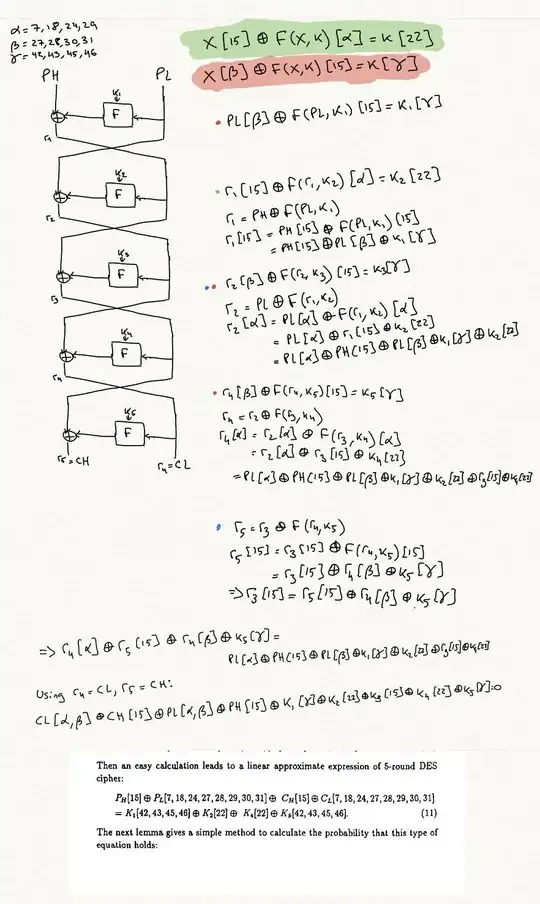 α=7,18,24,29
β=27,28,30,31
γ=42,43,45,46
X[15]⊕F(X,K)[α]=K[22]
X[β]⊕F(X,K)[15]=K[γ]
PH PL
K₁
F
r₁
K₂
F
r₂
K₃
F
r₃
K₄
F
r₄
K₅
F
r₅=CH r₄=CL
• PL[β]⊕F(PL,K₁)[15]=K₁[γ]
• r₁[15]⊕F(r₁,K₂)[α]=K₂[22]
r₁=PH⊕F(PL,K₁)
r₁[15]=PH[15]⊕F(PL,K₁)[15]
=PH[15]⊕PL[β]⊕K₁[γ]
•• r₂[β]⊕F(r₂,K₃)[15]=K₃[γ]
r₂=PL⊕F(r₁,K₂)
r₂[α]=PL[α]⊕F(r₁,K₂)[α]
=PL[α]⊕r₁[15]⊕K₂[22]
=PL[α]⊕PH[15]⊕PL[β]⊕K₁[γ]⊕K₂[22]
• r₄[β]⊕F(r₄,K₅)[15]=K₅[γ]
r₄=r₂⊕F(r₃,K₄)
r₄[α]=r₂[α]⊕F(r₃,K₄)[α]
=r₂[α]⊕r₃[15]⊕K₄[22]
=PL[α]⊕PH[15]⊕PL[β]⊕K₁[γ]⊕K₂[22]⊕r₃[15]⊕K₄[22]
• r₅=r₃⊕F(r₄,K₅)
r₅[15]=r₃[15]⊕F(r₄,K₅)[15]
=r₃[15]⊕r₄[β]⊕K₅[γ]
=>r₃[15]=r₅[15]⊕r₄[β]⊕K₅[γ]
=> r₄[α]⊕r₅[15]⊕r₄[β]⊕K₅[γ]=
PL[α]⊕PH[15]⊕PL[β]⊕K₁[γ]⊕K₂[22]⊕r₃[15]⊕K₄[22]
Using r₄=CL, r₅=CH:
CL[α,β]⊕CH[15]⊕PL[α,β]⊕PH[15]⊕K₁[γ]⊕K₂[22]⊕K₃[15]⊕K₄[22]⊕K₅[γ]=0
Then an easy calculation leads to a linear approximate expression of 5-round DES
cipher:
P_H[15]⊕P_L[7,18,24,27,28,29,30,31]⊕ C_H[15]⊕C_L[7,18,24,27,28,29,30,31]
= K₁[42,43,45,46]⊕K₂[22]⊕ K₄[22]⊕K₅[42,43,45,46]. (11)
The next lemma gives a simple method to calculate the probability that this type of
equation holds: